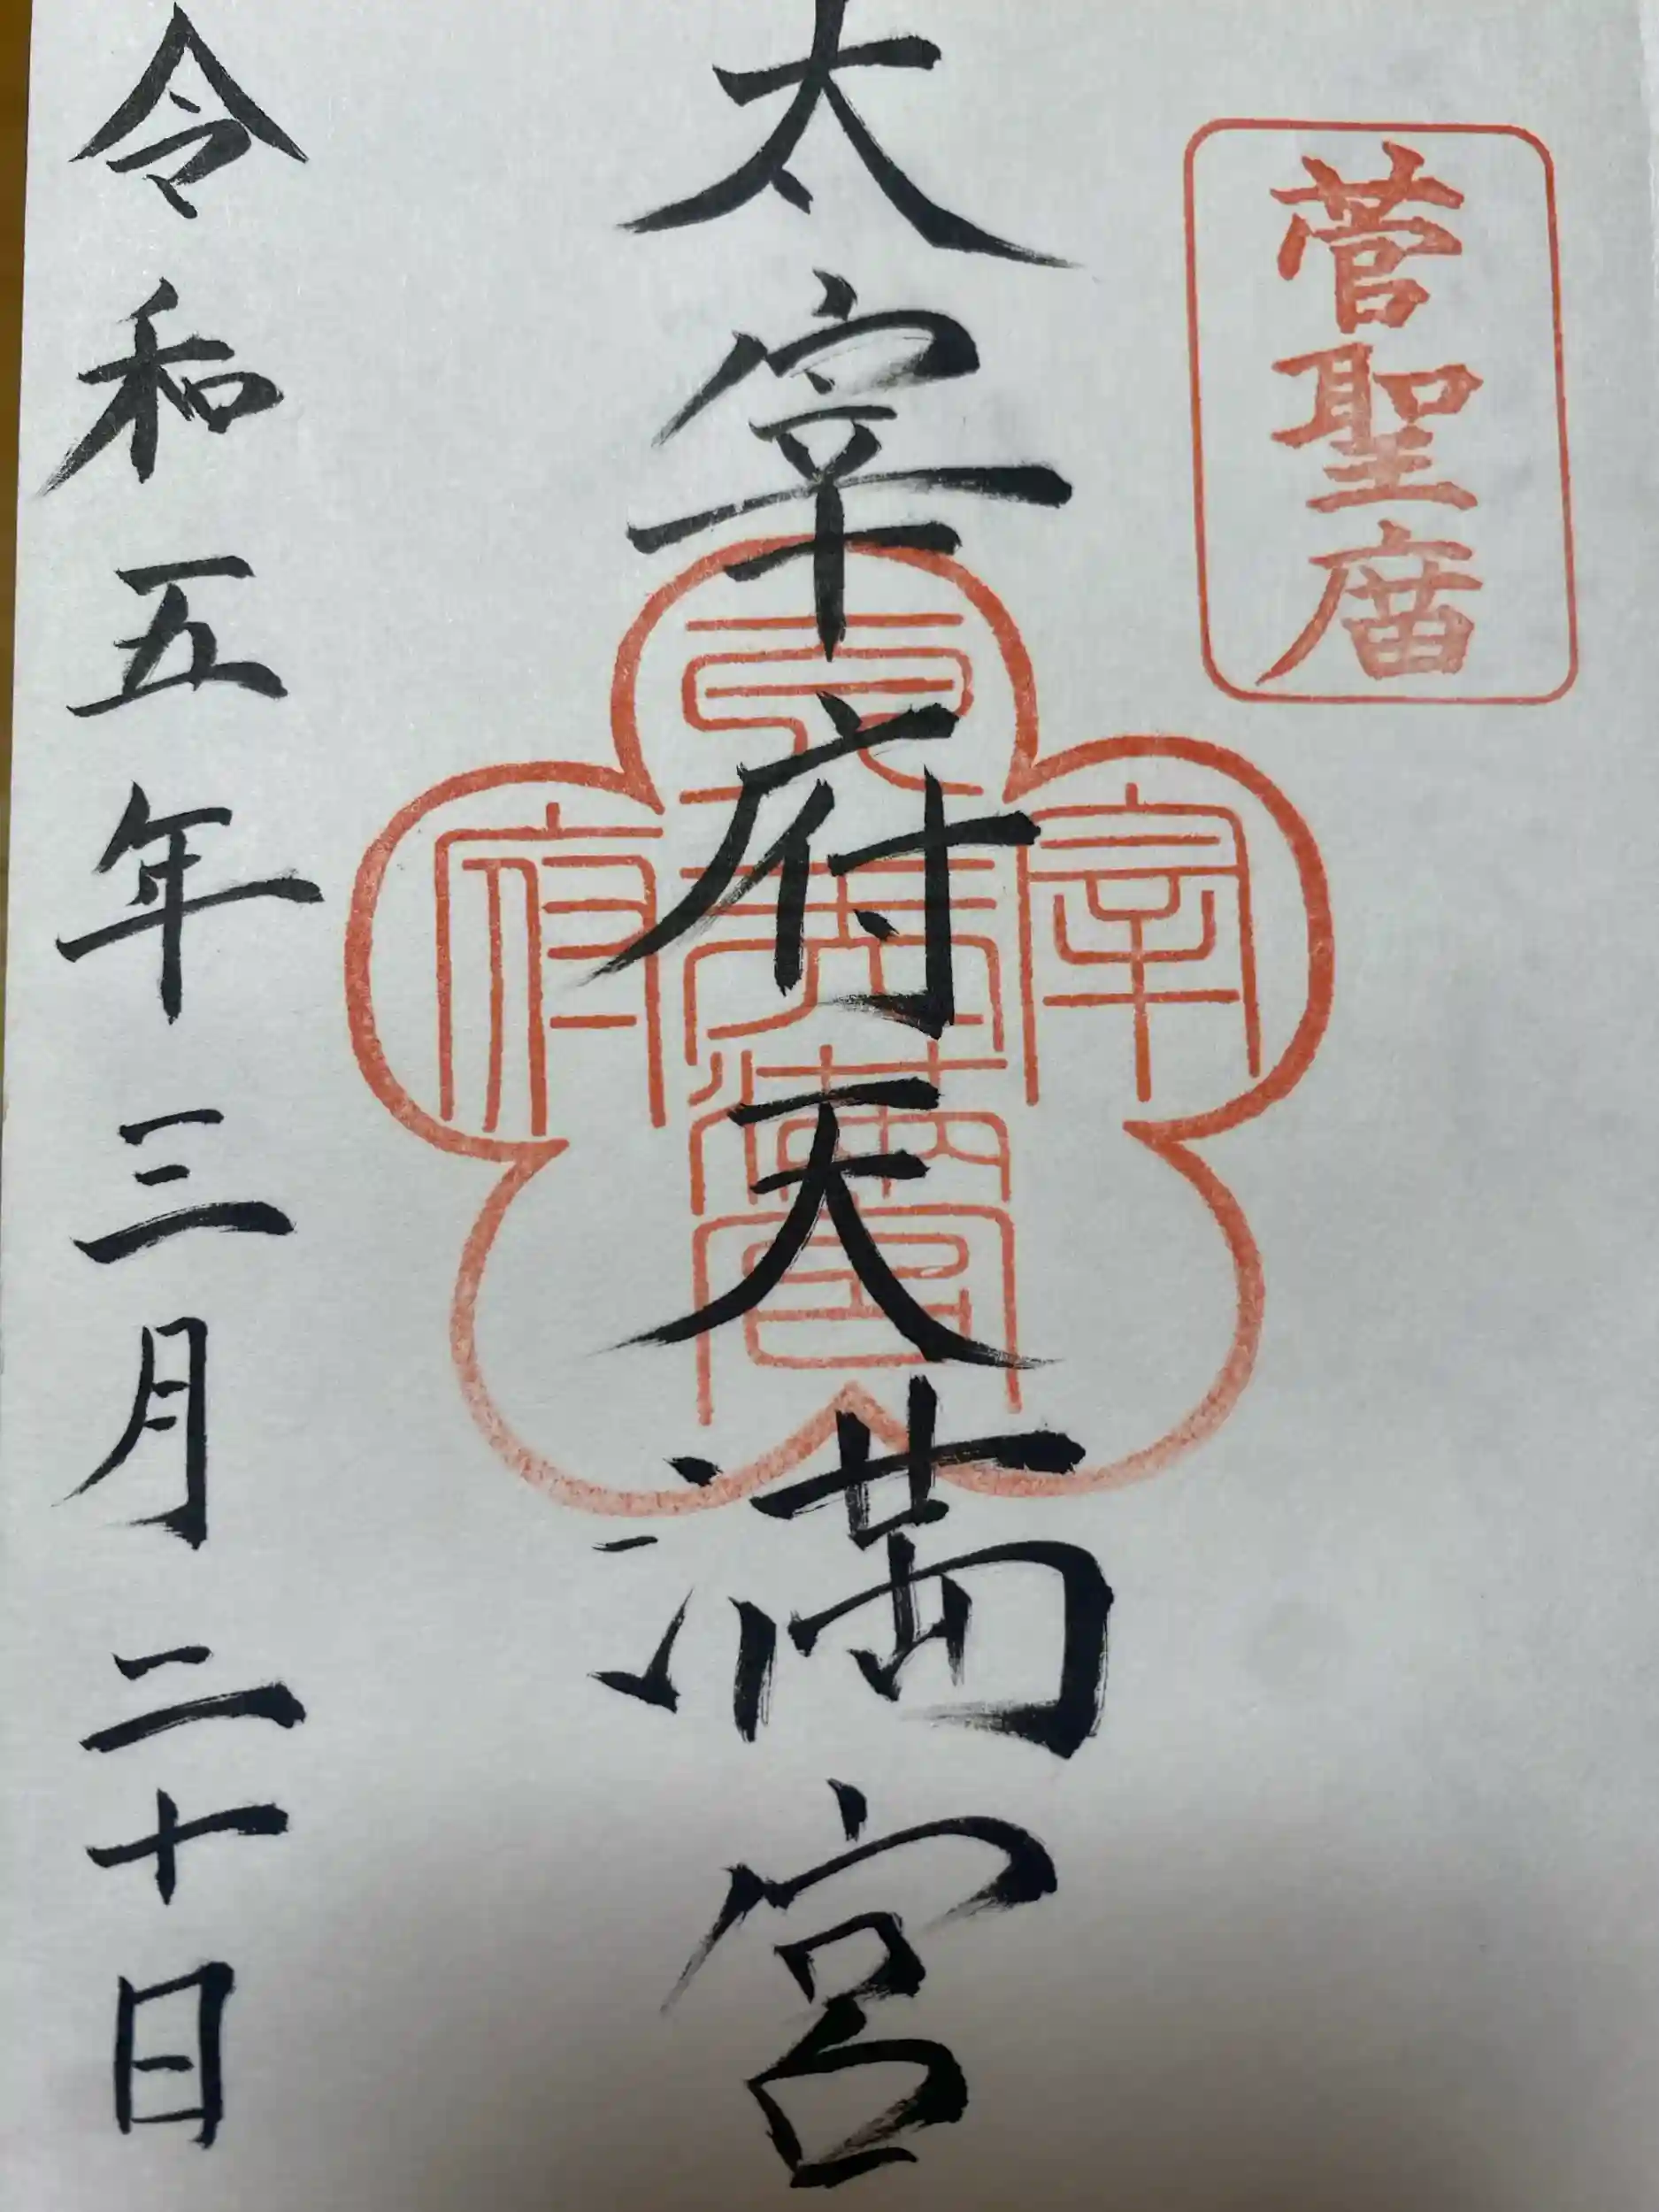 菅聖庿
太宰府天満宮
太宰府天満宮
令和五年三月二十日